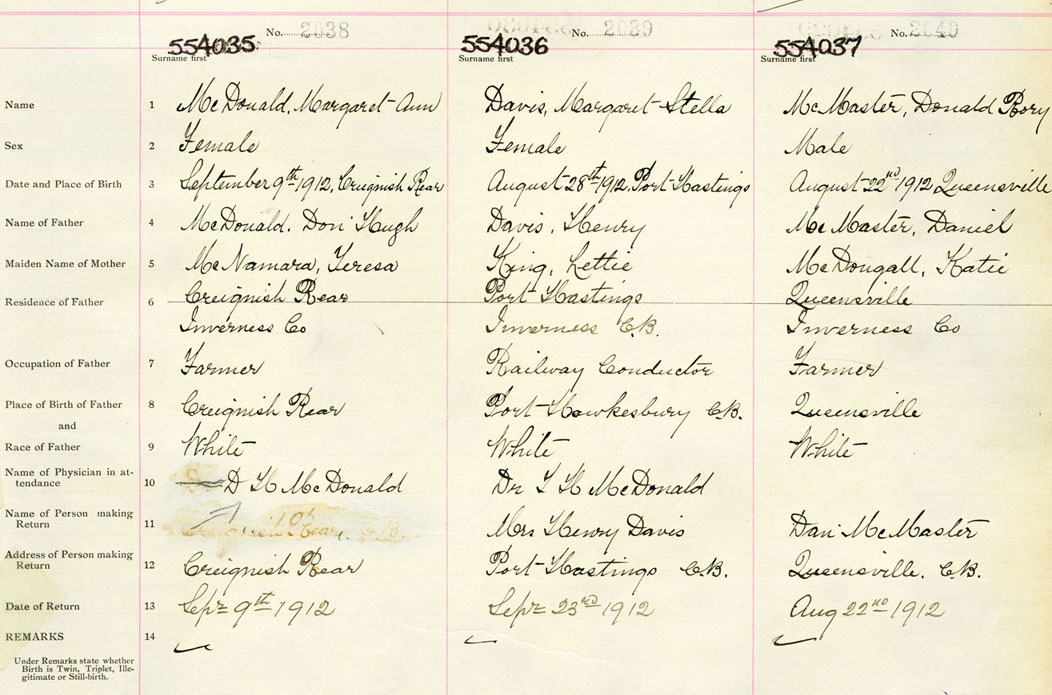 No. 2038 No. 2039 No. 2640
554035 554036 554037
Surname first Surname first Surname first
Name 1 McDonald, Margaret Ann Davis, Margaret Stella McMaster, Donald Rory
Sex 2 Female Female Male
Date and Place of Birth 3 September 9th 1912, Creignish Rear August 28th 1912 Port Hastings August 22nd 1912 Queensville
Name of Father 4 McDonald. Don Hugh Davis, Henry McMaster, Daniel
Maiden Name of Mother 5 McNamara, Teresa King, Lettie McDougall, Katie
Residence of Father 6 Creignish Rear Port Hastings Queensville
Inverness Co Inverness C.B. Inverness Co
Occupation of Father 7 Farmer Railway Conductor Farmer
Place of Birth of Father 8 Creignish Rear Port Hawkesbury C.B. Queensville
and
Race of Father 9 White White White
Name of Physician in at-
tendance 10 D H McDonald Dr McDonald
Name of Person making
Return 11 Creignish Rear, C.B. Mrs Henry Davis Dan McMaster
Address of Person making
Return 12 Creignish Rear Port Hastings C.B. Queensville. C.B.
Date of Return 13 Sept 9th 1912 Sept 23rd 1912 Aug 22nd 1912
REMARKS 14
Under Remarks state whether
Birth is Twin, Triplet, Ille-
gitimate or Still-birth.